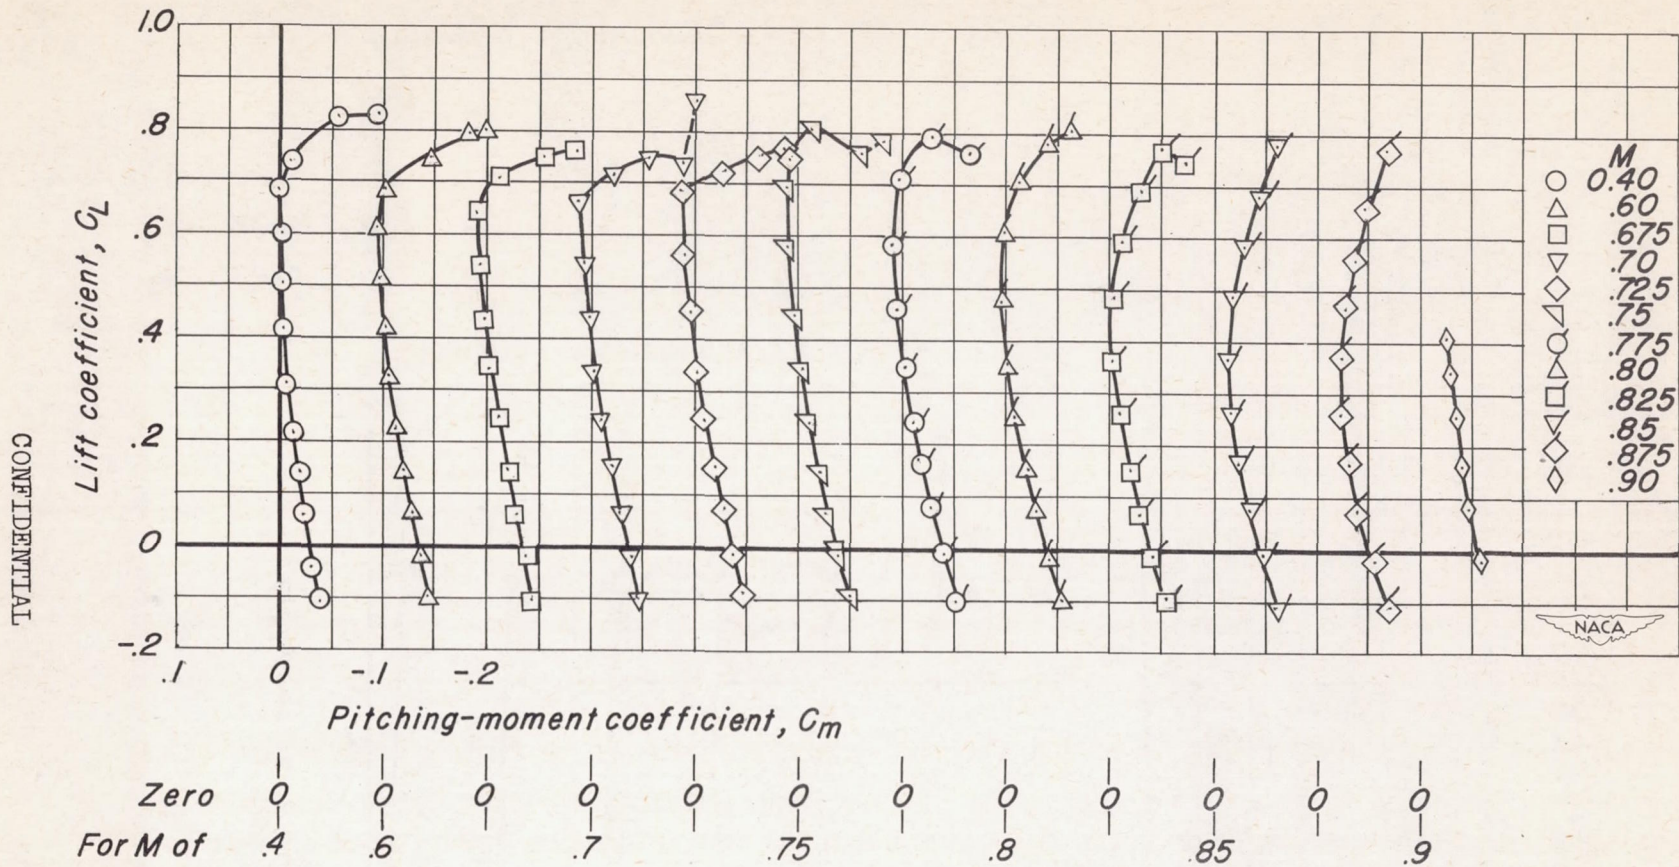 1.0
.8
.6
.4
.2
0
-.2
Lift coefficient, CL
CONFIDENTIAL
M
0.40
.60
.675
.70
.725
.75
.775
.80
.825
.85
.875
.90
NACA
.1 0 -.1 -.2
Pitching-moment coefficient, Cm
Zero 0 0 0 0 0 0 0 0 0 0 0 0
For M of .4 .6 .7 .75 .8 .85 .9